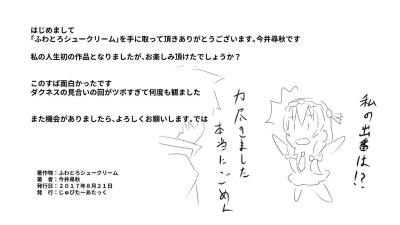 はじめまして
「ふわとろシュークリーム」を手に取って頂きありがとうございます。今井尋秋です
私の人生初の作品となりましたが、お楽しみ頂けたでしょうか？
このすば面白かったです
ダクネスの見合いの回がツボすぎて何度も観ました
また機会がありましたら、よろしくお願いします。では
私の出番は!?
力尽きました
本当にごめん
著作物：ふわとろシュークリーム
著　者：今井尋秋
発行日：２０１７年８月２１日
発　行：じゅぴたーあたっく